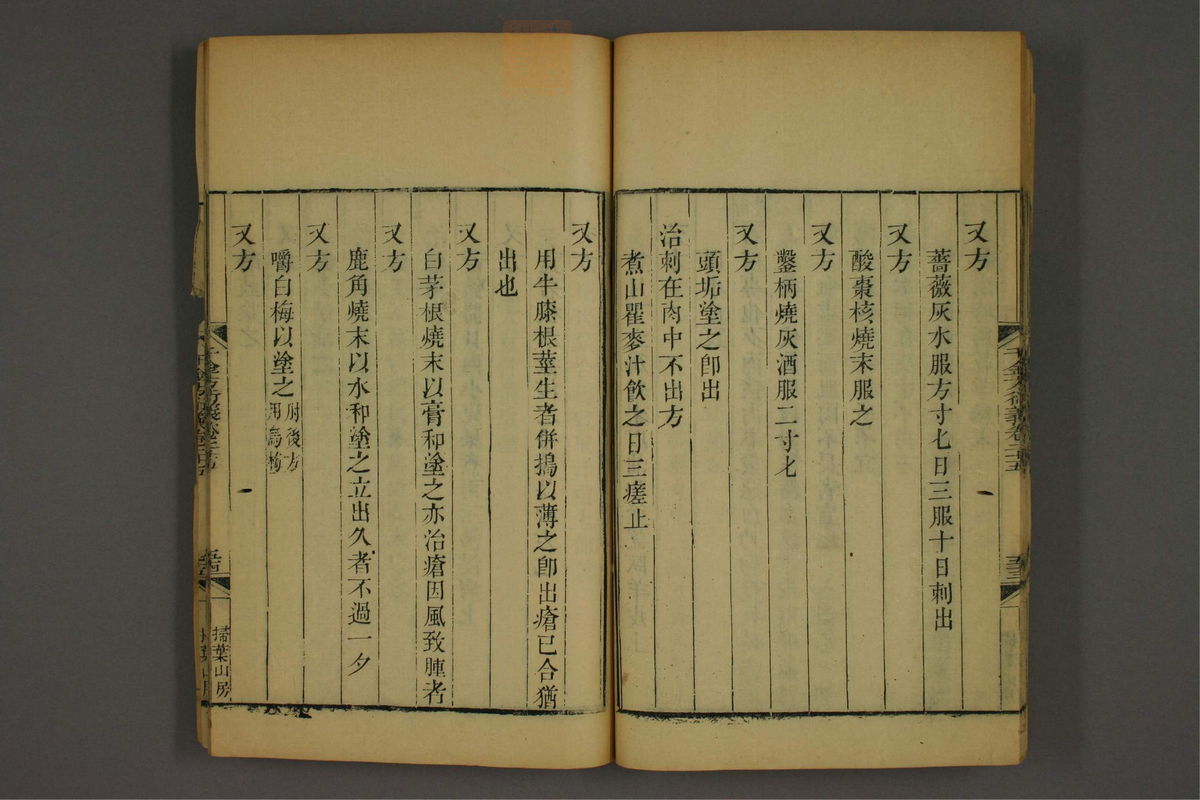 又方
薔薇灰水服方寸匕日三服十日刺出
又方
酸棗核燒末服之
又方
鑿柄燒灰酒服二寸匕
又方
頭垢塗之卽出
治刺在肉中不出方
煮山瞿麥汁飲之日三瘥止
又方
用牛膝根莖生者併搗以薄之卽出瘡已合猶
出也
又方
白茅根燒末以膏和塗之亦治瘡因風致腫者
又方
鹿角燒末以水和塗之立出久者不過一夕
又方
嚼白梅以塗之肘後方用烏梅
又方
千金方衍義卷二十五
掃葉山房